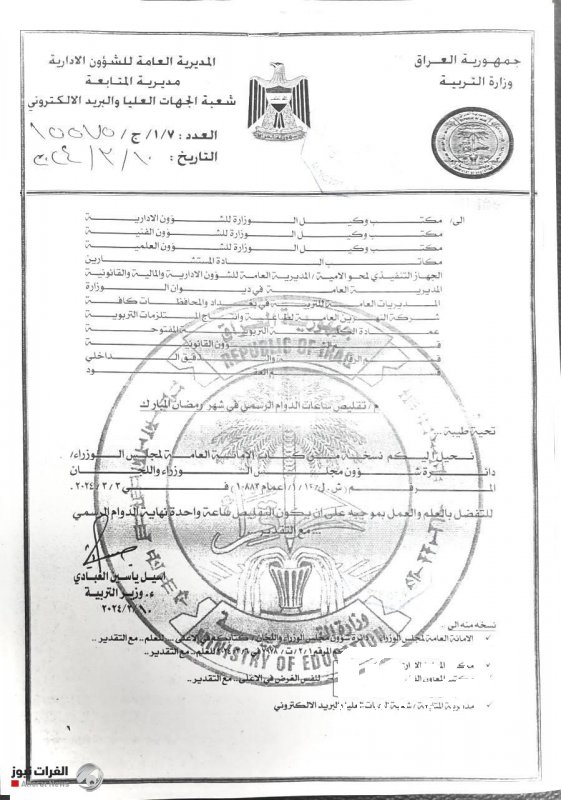 جمهورية العراق
وزارة التربية
المديرية العامة للشؤون الادارية
مديرية المتابعة
شعبة الجهات العليا والبريد الالكتروني
العدد: ١/٧/ج/
التاريخ: ٢٠٢٤/٣/١٠
الى/ مكتب وكيل الوزارة للشؤون الادارية
مكتب وكيل الوزارة للشؤون الفنية
مكتب وكيل الوزارة للشؤون العلمية
مكاتب السادة المستشارين
الجهاز التنفيذي لمحو الامية/ المديرية العامة للشؤون الادارية والمالية والقانونية
المديرية العامة في ديوان الوزارة
المديريات العامة للتربية في بغداد والمحافظات كافة
شركة النهرين العامة لطباعة وانتاج المستلزمات التربوية
التربوية المفتوحة
الشؤون القانونية
الداخلي
REPUBLIC OF IRAQ
م/ تقليص ساعات الدوام الرسمي في شهر رمضان المبارك
تحية طيبة ..
نحيل اليكم نسخة من كتاب الامانة العامة لمجلس الوزراء/
دائرة شؤون مجلس الوزراء واللجان
المرقم (ش.ل/١/١/اعمام/١٠٨٨٣) في ٢٠٢٤/٣/٢ .
للتفضل بالعلم والعمل بموجبه على ان يكون التقليص ساعة واحدة نهاية الدوام الرسمي
... مع التقدير
اسيل ياسين العبادي
ء. وزير التربية
٢٠٢٤/٣/١٠
وزارة التربية
MINISTRY OF EDUCATION
نسخه منه الى ..
الامانة العامة لمجلس الوزراء / دائرة شؤون مجلس الوزراء واللجان/ كتابكم في الاعلى.... للعلم .. مع التقدير ..
للعلم .. مع التقدير..
لنفس الغرض في الاعلى .. مع التقدير..
مديرية المتابعة / شعبة الجهات العليا والبريد الالكتروني
الفرات نيوز
Alforat News